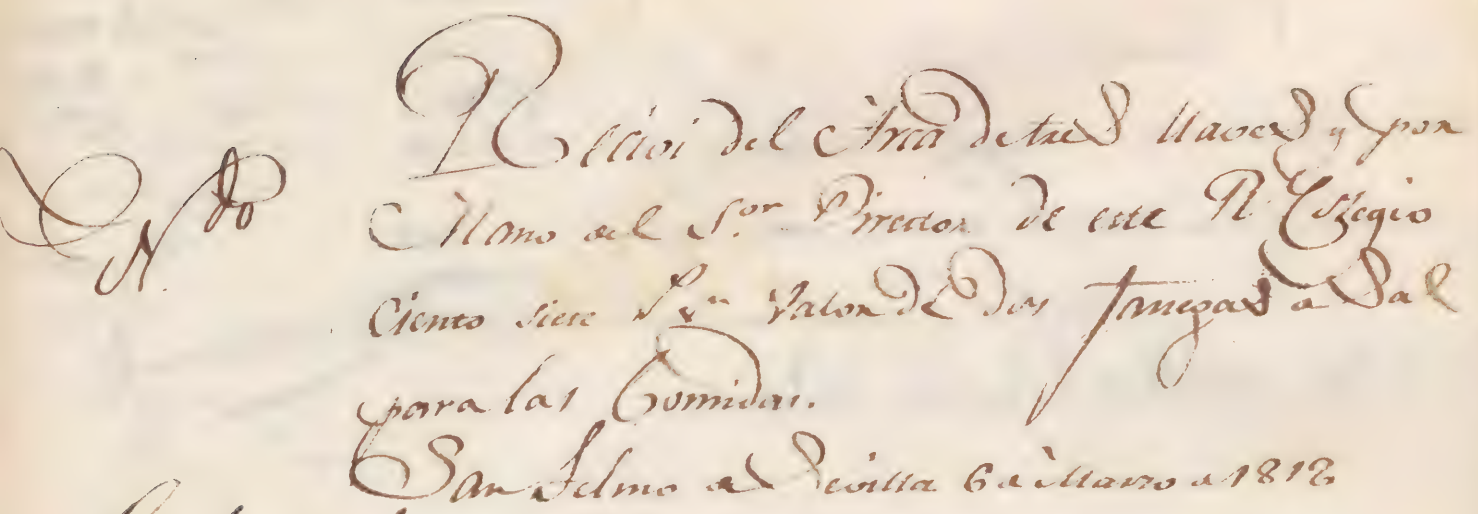 Recivi del Arca de tres llaves y por
Mano del S.or Director de este R.l Colegio
Ciento siete R.s v.n Valor de dos fanegas de Sal
para las Comidas.
San Telmo de Sevilla 6 de Marzo de 1818